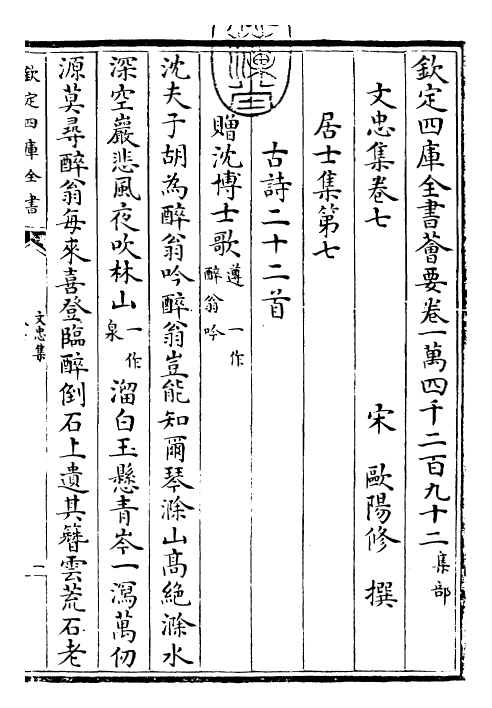 欽定四庫全書薈要卷一萬四千二百九十二集部
文忠集卷七 宋 歐陽修 撰
居士集第七
古詩二十二首
贈沈博士歌遵一作醉翁吟
沈夫子胡為醉翁吟醉翁豈能知爾琴滁山高絶滁水
深空巖悲風夜吹林山一作泉溜白玉懸青岑一瀉萬仞
源莫尋醉翁每來喜登臨醉倒石上遺其簪雲荒石老
欽定四庫全書
文忠集